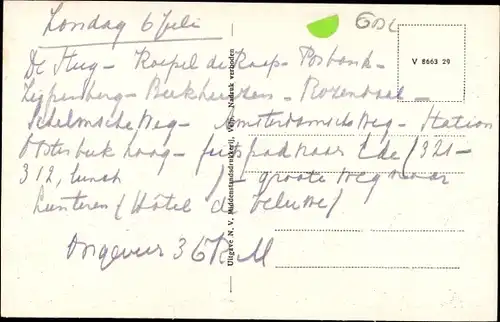 Zondag 6 Juli
De Steeg - Koepel de Kaap - Posbank -
Zijpenberg - Beekhuizen - Rozendaal -
Schelmsche Weg - Amsterdamsche Weg - Station
Oosterbeek hoog - fietspad naar Ede (321 -
312, lunch ) - groote weg naar
Lunteren (Hôtel de Veluwe)
Ongeveer 36 K.M
V 8663 29
Uitgave N. V. Middenstandsdrukkerij, Velp. Nadruk verboden